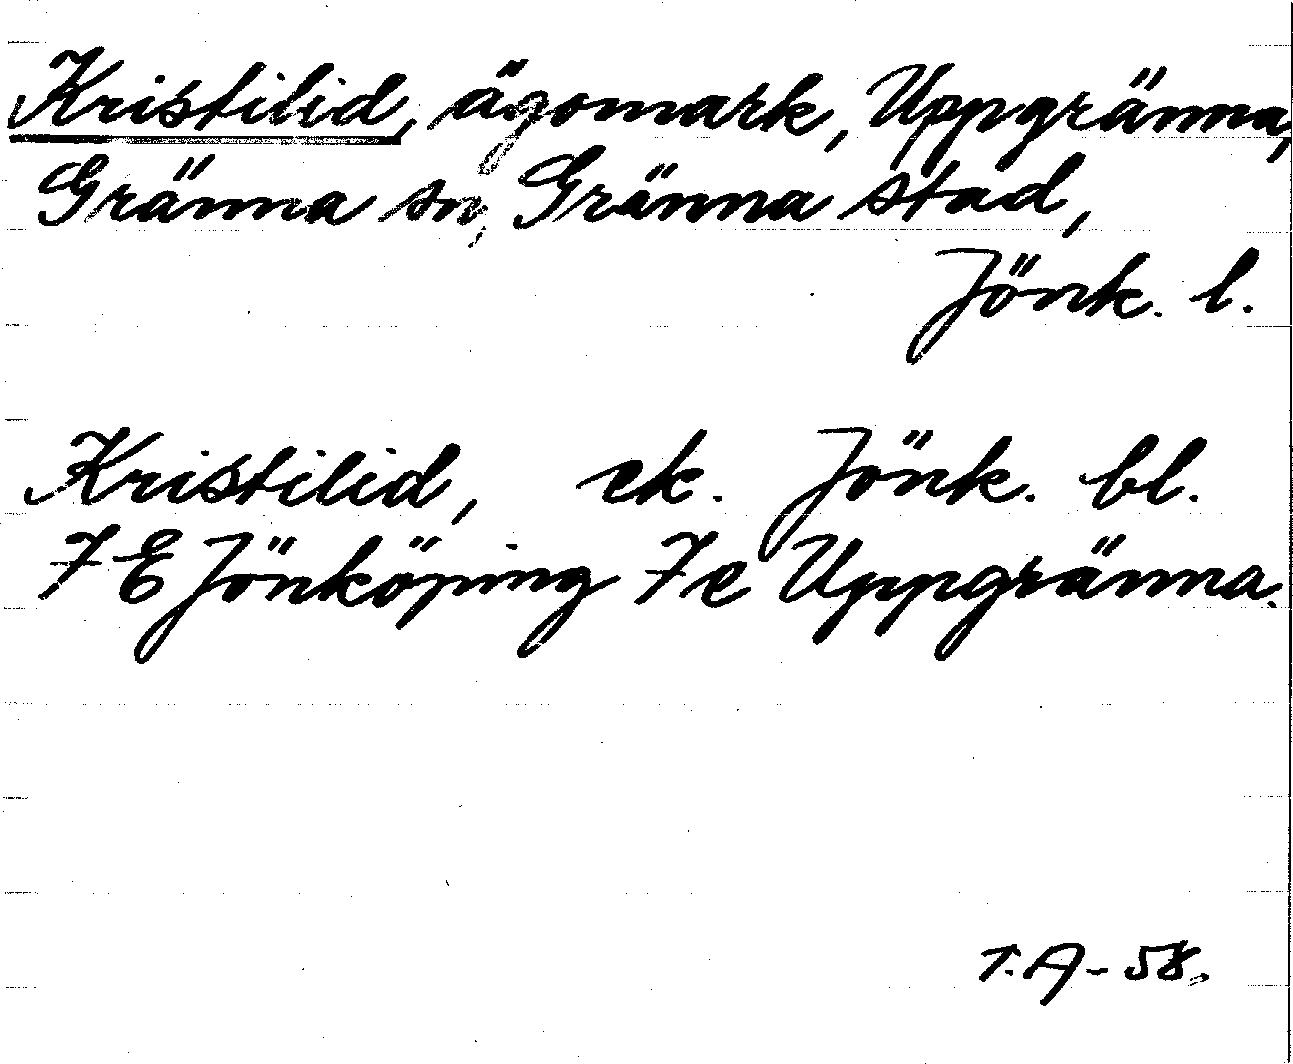 Kristilid, ägomark, Uppgränna,
Gränna sn, Gränna stad,
Jönk. l.
Kristilid, ek. Jönk. bl.
7 E Jönköping 7e Uppgränna.
T.A-58.